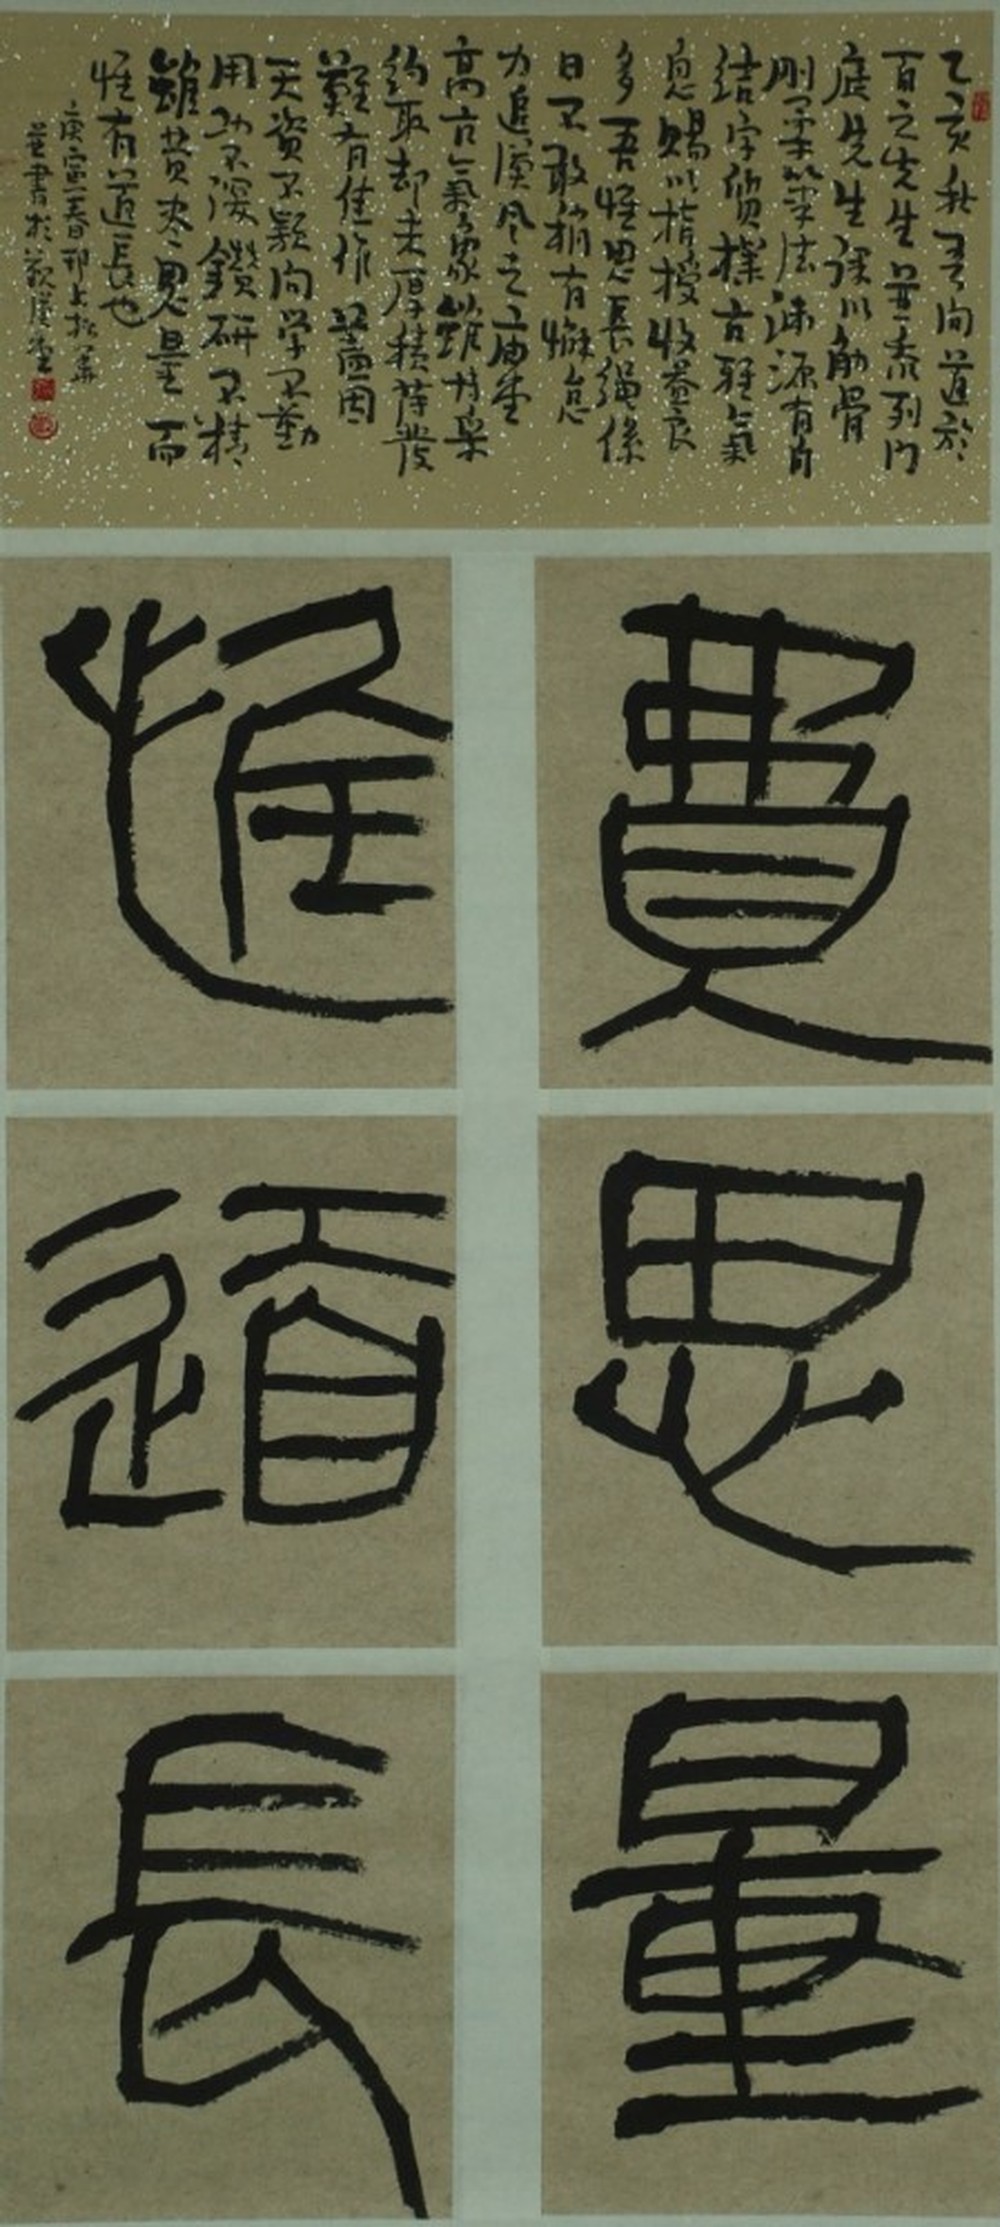 乙亥秋吾問道於
百之先生並忝列門
庭先生課以筋骨
剛柔筆法溯源有自
結字質樸古雅氣
息賜以指授收益良
多吾惟思長繩係
日不敢稍有懈怠
力追漢風之廟堂
高古氣象雖博采
約取却未厚積薄發
難有佳作蓋因
天資不穎向學不勤
用功不深鑽研不精
雖費盡思量而
惟有道長也
庚寅春邗上
並書於漢堂
費思量
惟道長